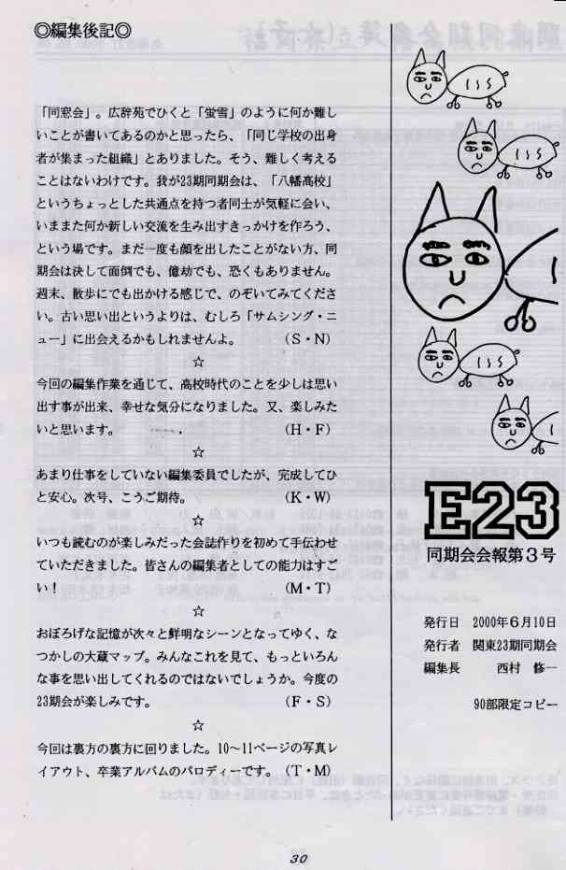 ◎編集後記◎
「同窓会」。広辞苑でひくと「蛍雪」のように何か難し
いことが書いてあるのかと思ったら、「同じ学校の出身
者が集まった組織」とありました。そう、難しく考える
ことはないわけです。我が23期同期会は、「八幡高校」
というちょっとした共通点を持つ者同士が気軽に会い、
いままた何か新しい交流を生み出すきっかけを作ろう、
という場です。まだ一度も顔を出したことがない方、同
期会は決して面倒でも、億劫でも、恐くもありません。
週末、散歩にでも出かける感じで、のぞいてみてくださ
い。古い思い出というよりは、むしろ「サムシング・ニ
ュー」に出会えるかもしれませんよ。 (S・N)
☆
今回の編集作業を通じて、高校時代のことを少しは思い
出す事が出来、幸せな気分になりました。又、楽しみた
いと思います。 (H・F)
☆
あまり仕事をしていない編集委員でしたが、完成してひ
と安心。次号、こうご期待。 (K・W)
☆
いつも読むのが楽しみだった会誌作りを初めて手伝わせ
ていただきました。皆さんの編集者としての能力はすご
い! (M・T)
☆
おぼろげな記憶が次々と鮮明なシーンとなってゆく、な
つかしの大蔵マップ。みんなこれを見て、もっといろん
な事を思い出してくれるのではないでしょうか。今度の
23期会が楽しみです。 (F・S)
☆
今回は裏方の裏方に回りました。10〜11ページの写真レ
イアウト、卒業アルバムのパロディーです。 (T・M)
E23
同期会会報第3号
発行日 2000年6月10日
発行者 関東23期同期会
編集長 西村 修一
90部限定コピー
30